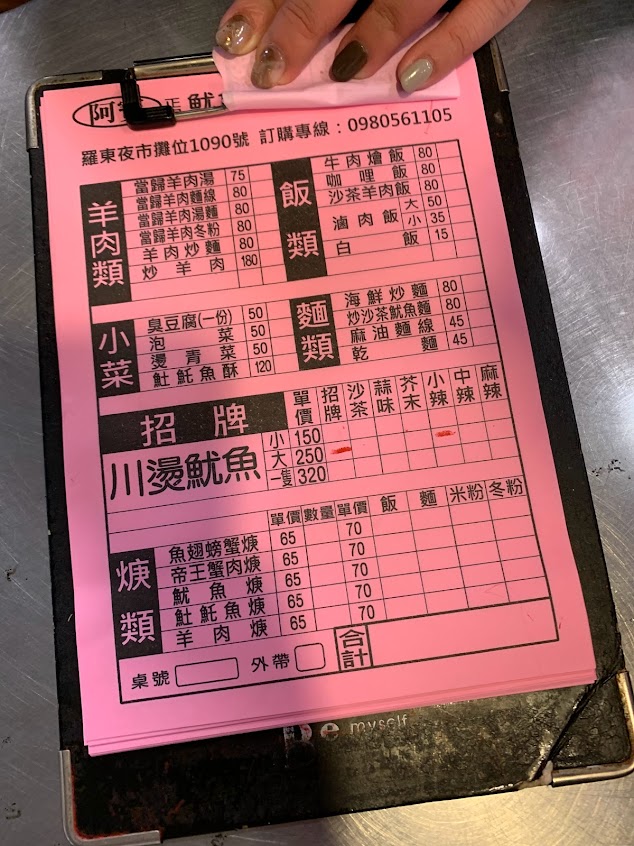 阿 正 魷
羅東夜市攤位1090號 訂購專線：0980561105
羊肉類
當歸羊肉湯 75
當歸羊肉麵線 80
當歸羊肉湯麵 80
當歸羊肉冬粉 80
羊肉炒麵 80
炒羊肉 180
飯類
牛肉燴飯 80
咖哩飯 80
沙茶羊肉飯 80
滷肉飯 大 50
小 35
白飯 15
小菜
臭豆腐(一份) 50
泡菜 50
燙青菜 50
𩵚魠魚酥 120
麵類
海鮮炒麵 80
炒沙茶魷魚麵 80
麻油麵線 45
乾麵 45
招牌 單價 招牌 沙茶 蒜味 芥末 小辣 中辣 麻辣
川燙魷魚
小 150
大 250
一隻 320
羹類
單價 數量 單價 飯 麵 米粉 冬粉
魚翅螃蟹焿 65 70
帝王蟹肉焿 65 70
魷魚焿 65 70
𩵚魠魚焿 65 70
羊肉焿 65 70
桌號 外帶 合計
myself